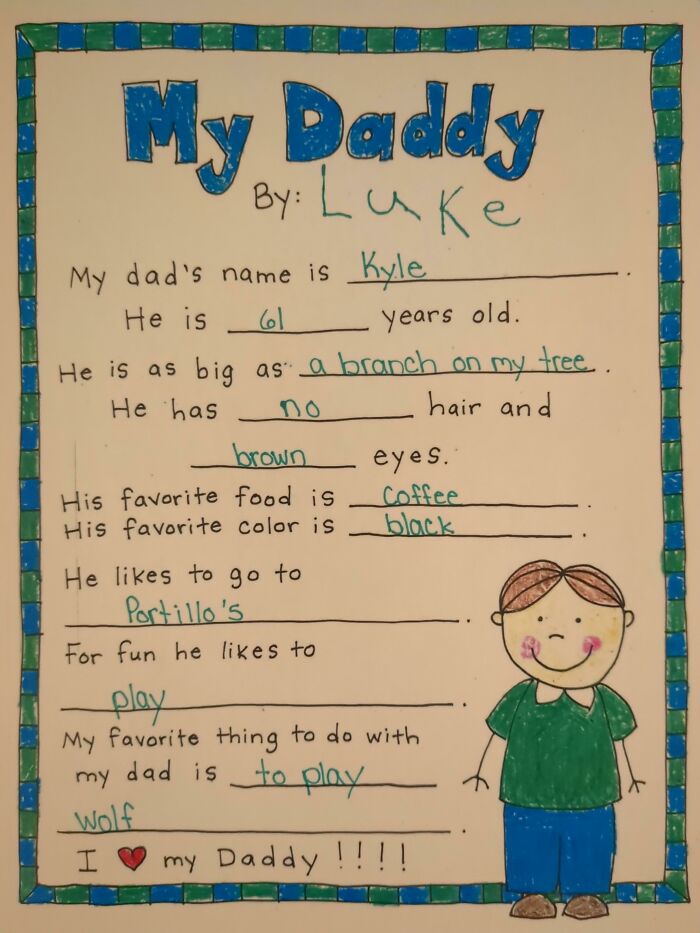 My Daddy
By: Luke
My dad's name is Kyle.
He is 61 years old.
He is as big as a branch on my tree.
He has no hair and
brown eyes.
His favorite food is coffee.
His favorite color is black.
He likes to go to
Portillo's.
For fun he likes to
play.
My favorite thing to do with
my dad is to play
wolf.
I ❤ my Daddy !!!!